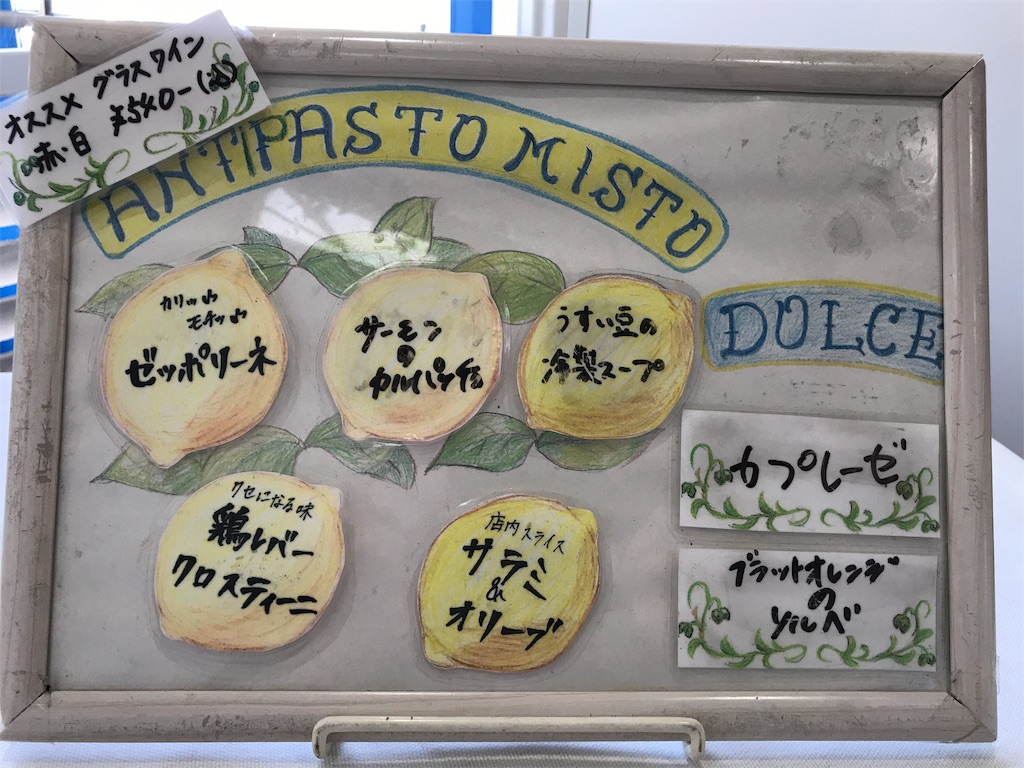 オススメ グラスワイン
赤・白 ¥540-(込)
ANTIPASTO MISTO
カリッ♪
モチッ♪
ゼッポリーネ
サーモン
の
カルパッチョ
うすい豆の
冷製スープ
クセになる味
鶏レバー
クロスティーニ
店内スライス
サラミ
&
オリーブ
DOLCE
カプレーゼ
ブラットオレンジ
の
ソルベ